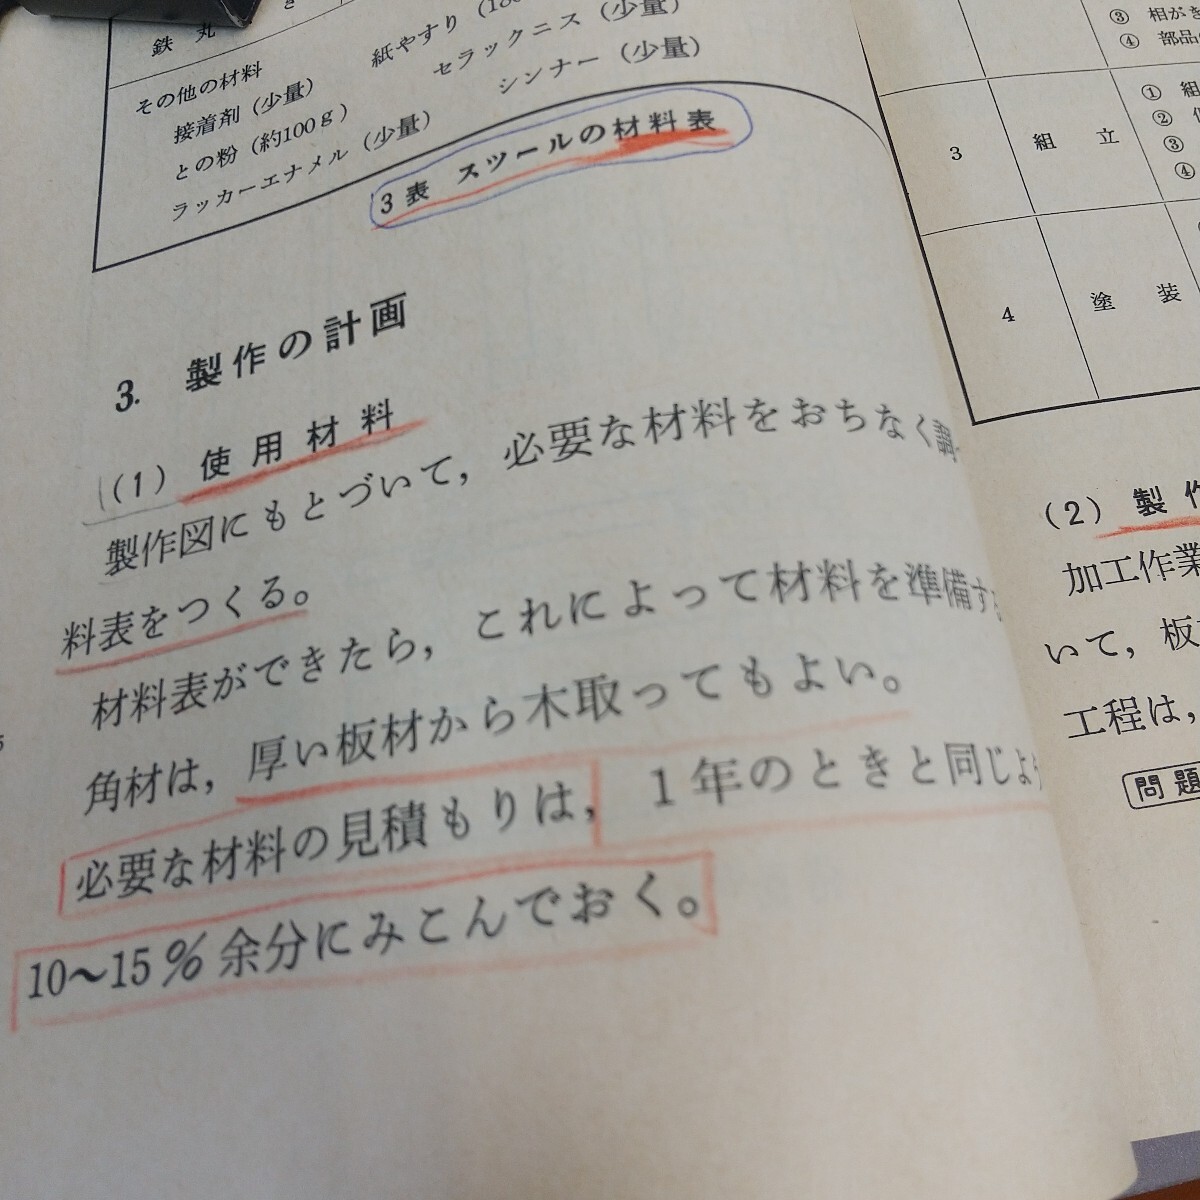 鉄丸
その他の材料
接着剤(少量)
との粉(約100g)
ラッカーエナメル(少量)
紙やすり(180
セラックニス(少量)
シンナー(少量)
3表 スツールの材料表
3. 製作の計画
(1) 使用材料
製作図にもとづいて, 必要な材料をおちなく調
料表をつくる。
材料表ができたら, これによって材料を準備す
角材は, 厚い板材から木取ってもよい。
必要な材料の見積もりは, 1年のときと同じよ
10〜15%余分にみこんでおく。
③ 相が
④ 部品
3 組立
① 組
②
③
④
4 塗装
(2) 製作
加工作業
いて, 板
工程は,
問題